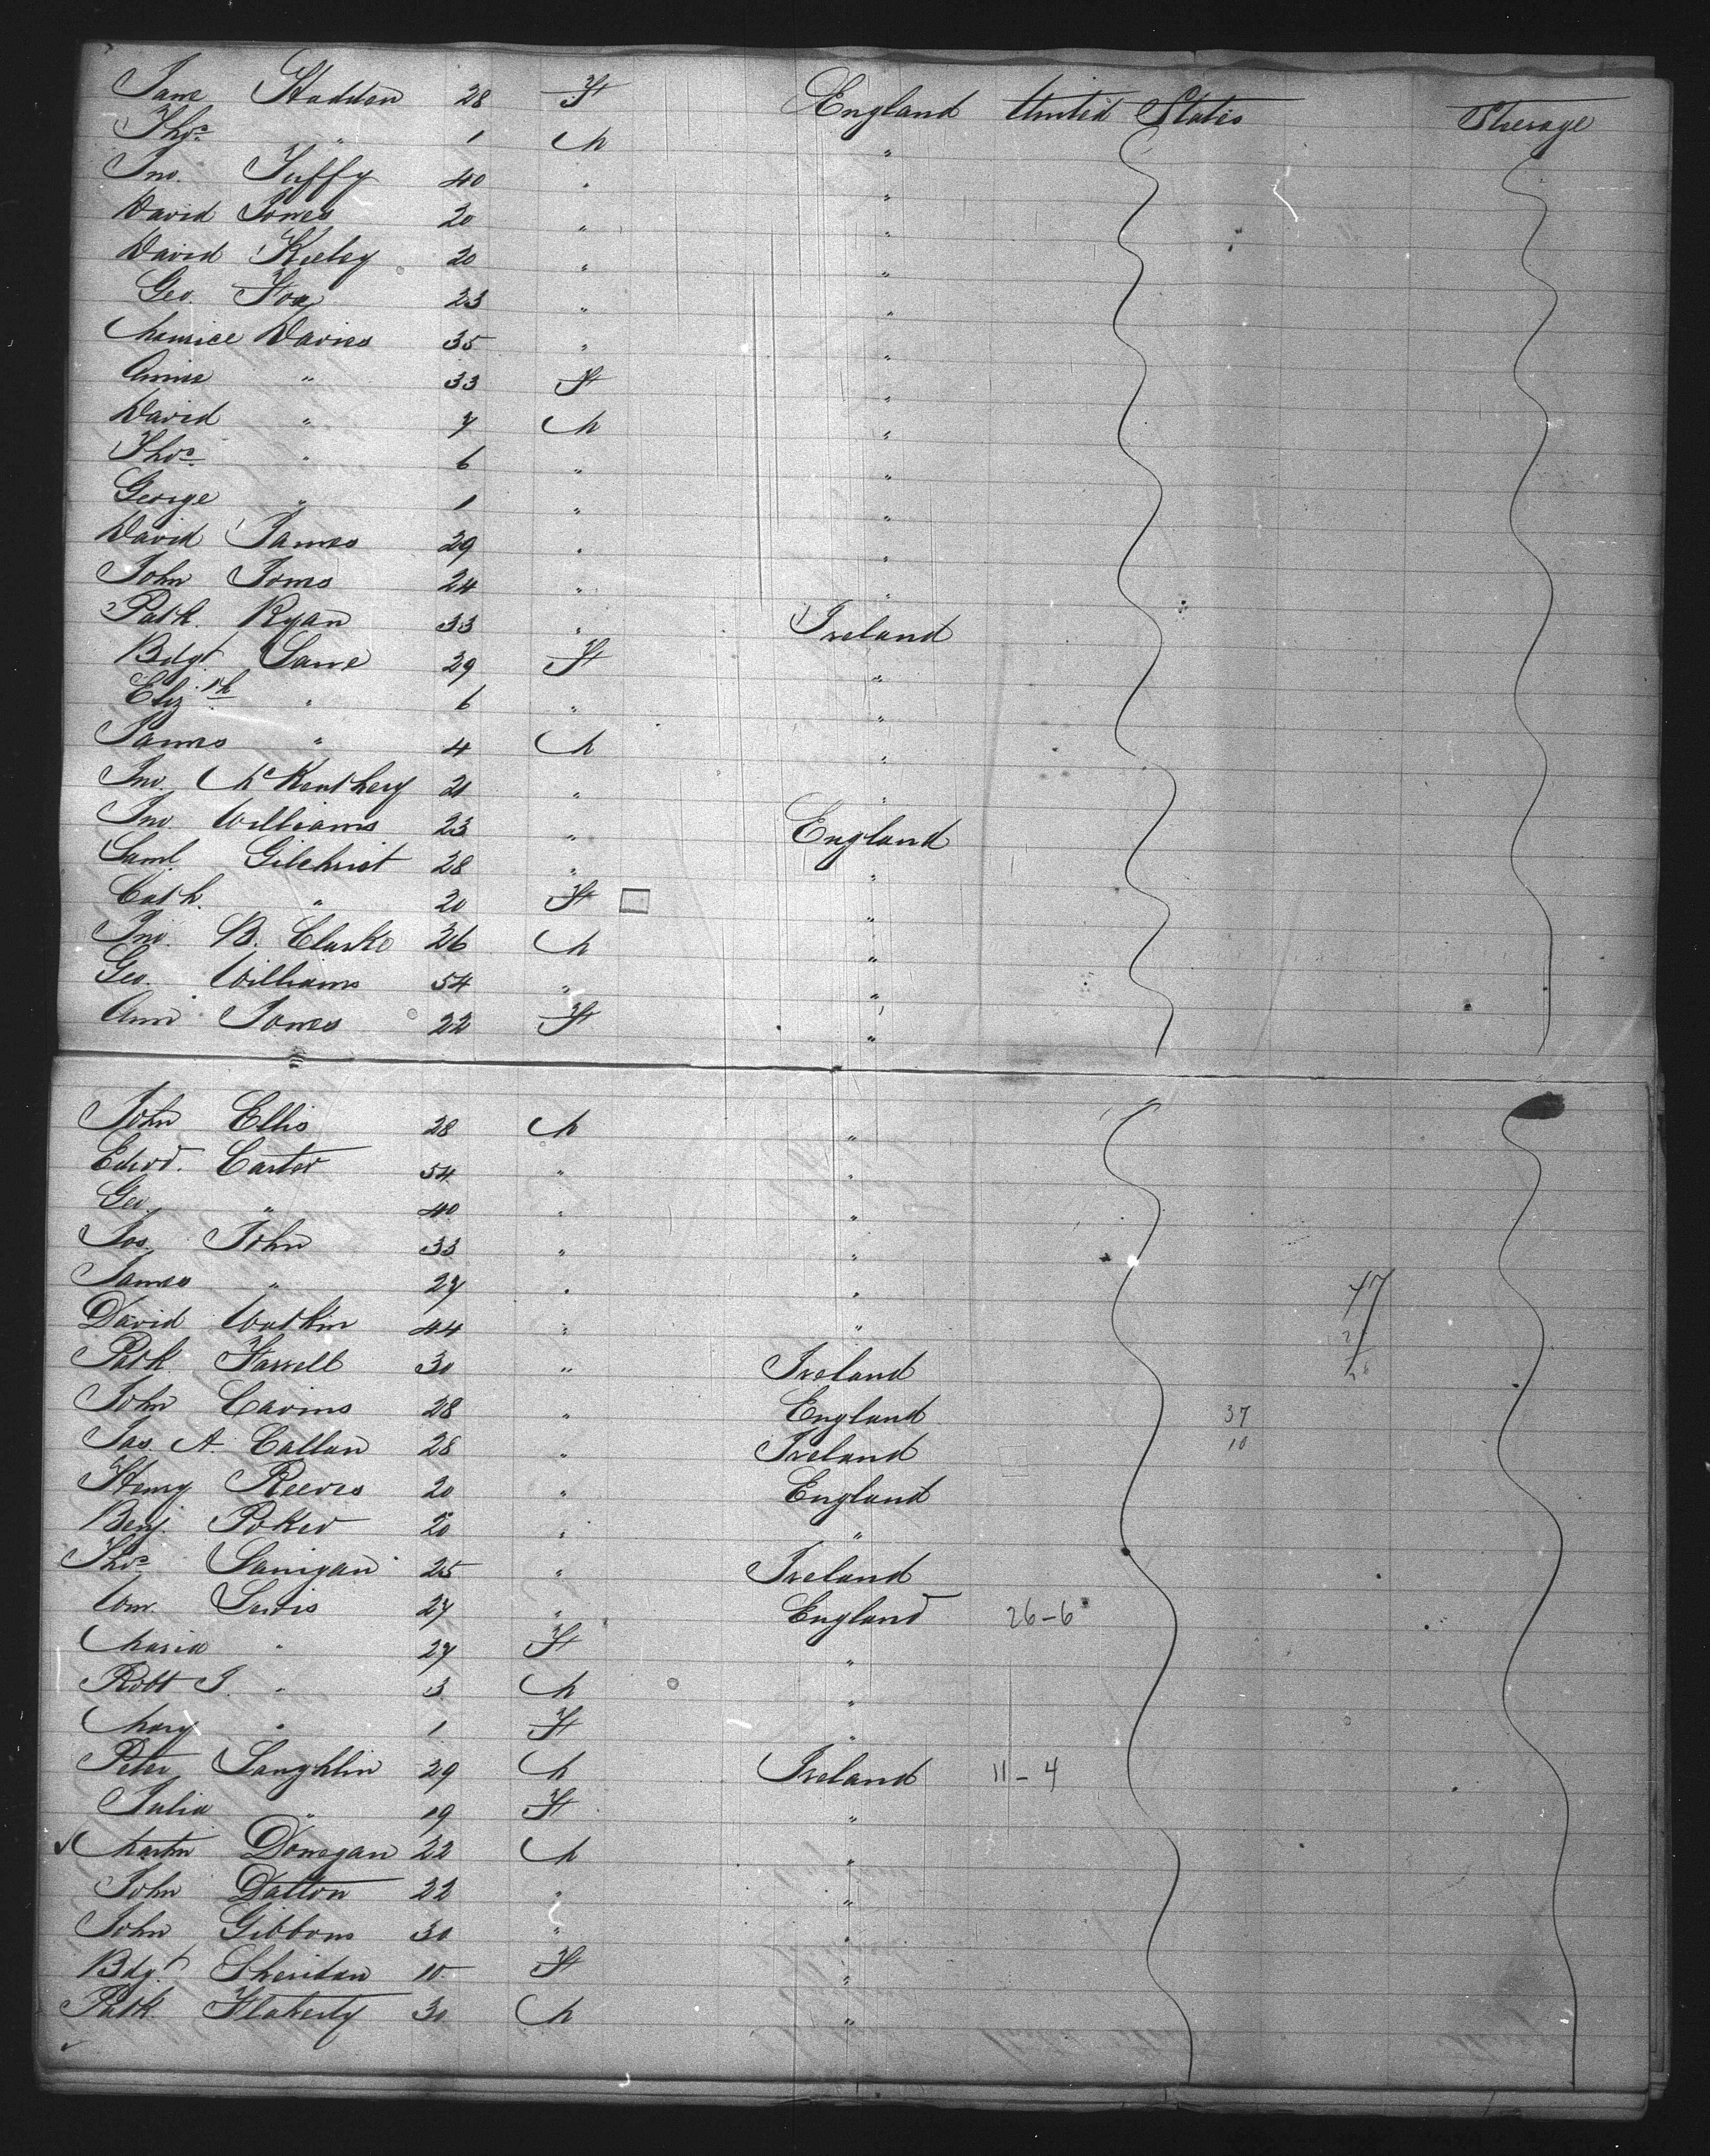 Jane Hadden 28 F England United States Steerage
Thos " 1 M "
Jno. Tuffy 40 " "
David Jones 20 " "
David Keeley 20 " "
Geo. Fox 23 " "
Maurice Davies 35 " "
Annie " 33 F "
David " 7 M "
Thos " 6 " "
George " 1 " "
David James 29 " "
John Jones 24 " "
Patk. Ryan 33 " Ireland
Bdgt. Lane 29 F "
Elizth " 6 " "
James " 4 M "
Jno. McKenthery 21 " "
Jno. Williams 23 " England
Saml. Gilchrist 28 " "
Cath. " 20 F "
Jno. B. Clarke 26 M "
Geo. Williams 54 " "
Ann Jones 22 F "
John Ellis 28 M "
Edwd. Carter 54 " "
Geo. " 40 " "
Jos. John 33 " "
James " 27 " "
47
David Watkin 44 " "
Patk Farrell 30 " Ireland
John Cavins 28 " England 37
Jas. A. Callan 28 " Ireland 10
Henry Reeves 20 " England
Benj. Poker 20 " "
Thos Lanigan 25 " Ireland
Wm. Lewis 27 " England 26-6
Maria " 27 F "
Robt J. " 3 M "
Mary " 1 F "
Peter Laughlin 29 M Ireland 11-4
Julia " 19 F "
Martin Donegan 22 M "
John Dalton 22 " "
John Gibbons 30 " "
Bdgt. Sheridan 10 F "
Patk. Flaherty 30 M "